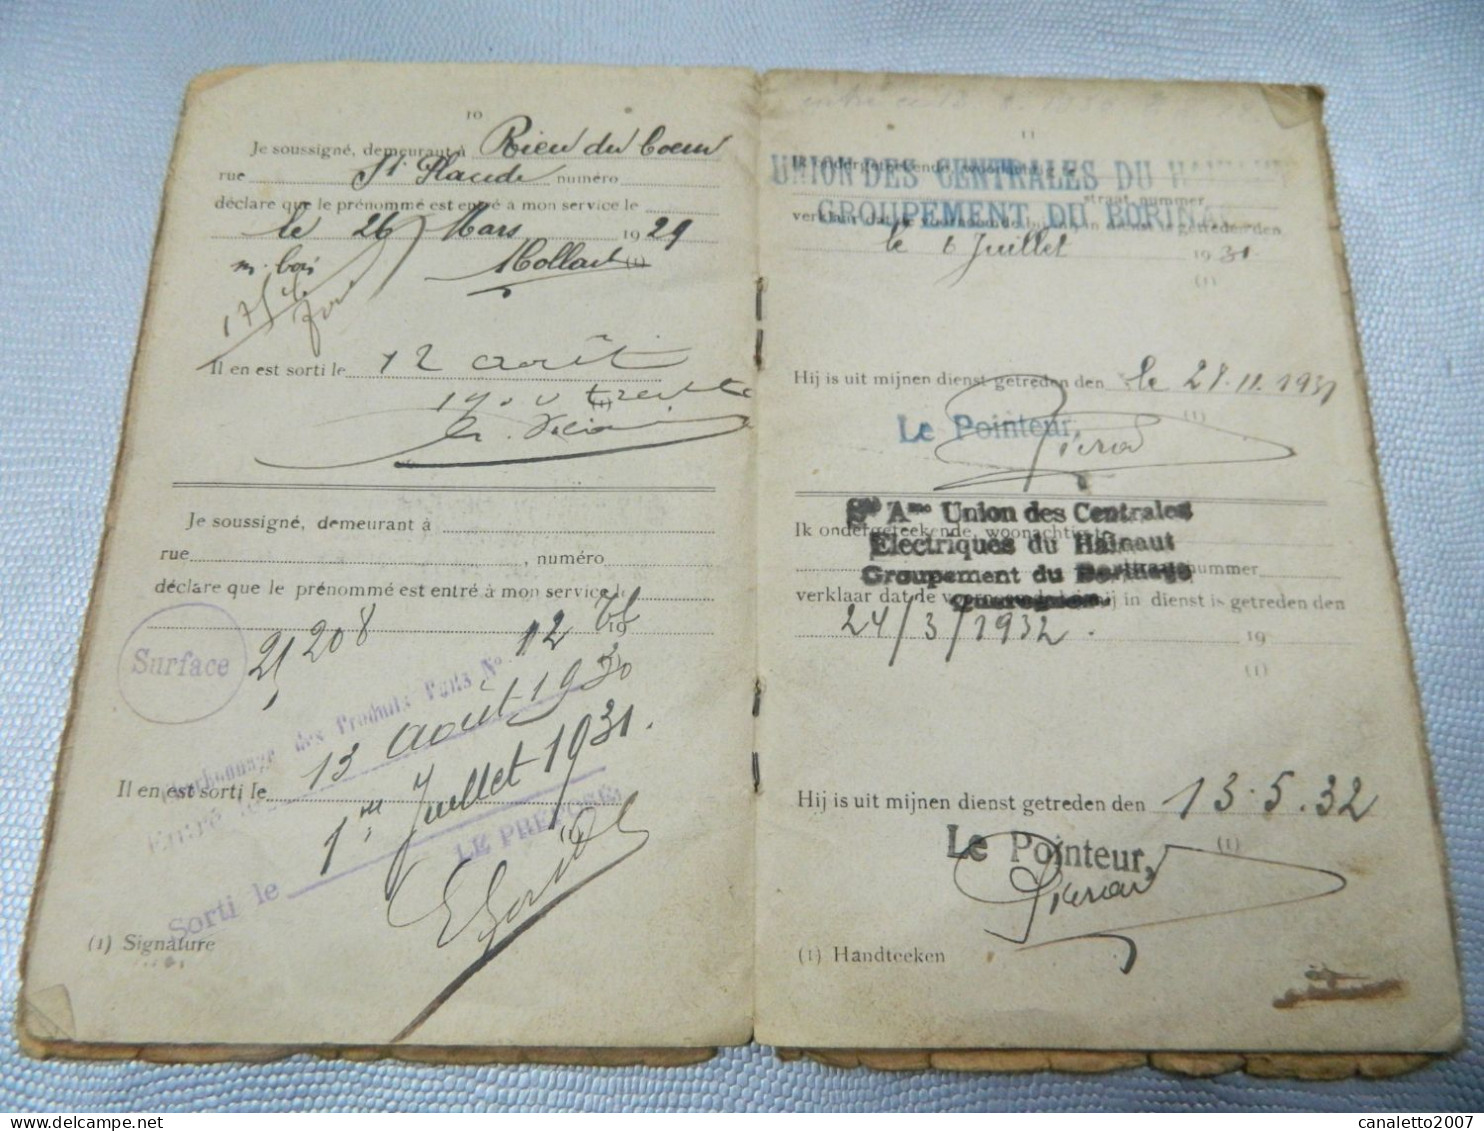 10
Je soussigné, demeurant à Rieu du Coeur
rue St Placide numéro
déclare que le prénommé est entré à mon service le
le 26 Mars 1929
m. bois
Mollart (1)
Il en est sorti le 12 août
(1) trente
Je soussigné, demeurant à
rue , numéro
déclare que le prénommé est entré à mon service le
21 208 12 19
Surface
Charbonnage des Produits Puits No
Entré le 13 août 1930
Il en est sorti le 1er Juillet 1931.
LE PREPOSÉ,
Sorti le
(1) Signature
11
UNION DES CENTRALES DU HAINAUT
straat nummer
GROUPEMENT DU BORINA
verklaar dat de in dienst is getreden den
le 6 Juillet 1931
(1)
Hij is uit mijnen dienst getreden den le 28.11.1931
(1)
Le Pointeur,
Pierard
Sté Ame Union des Centrales
Ik ondergeteekende, woonachtig te
Electriques du Hainaut
nummer
Groupement du Borinage
verklaar dat de voornoemde bij mij in dienst is getreden den
Quaregnon
24/3/1932. 19
(1)
Hij is uit mijnen dienst getreden den 13.5.32
Le Pointeur, (1)
Pierard
(1) Handteeken
canaletto2007